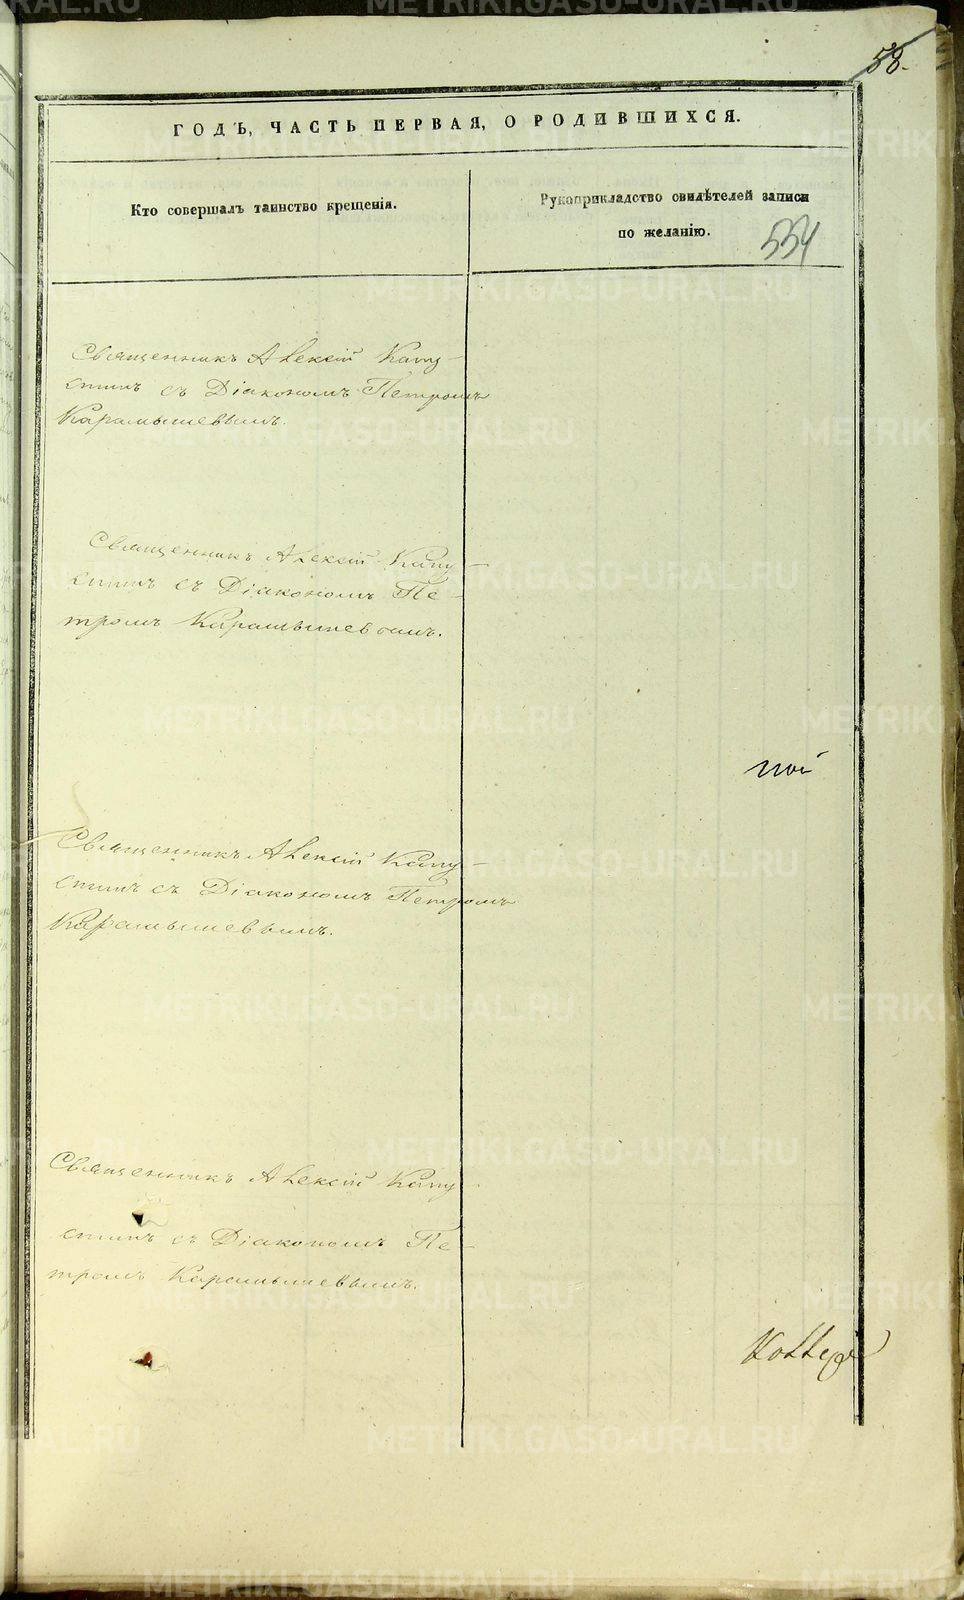 58.
ГОДЪ, ЧАСТЬ ПЕРВАЯ, О РОДИВШИХСЯ.
Кто совершалъ таинство крещенія.
Рукоприкладство свидѣтелей записи
по желанію.
554
Священникъ Алексій Капу-
стинъ съ Діакономъ Петромъ
Карамышевымъ.
Священникъ Алексій Капу-
стинъ съ Діакономъ Пе-
тромъ Карамышевымъ.
ной
Священникъ Алексій Капу-
стинъ съ Діакономъ Петромъ
Карамышевымъ.
Священникъ Алексій Капу-
стинъ съ Діакономъ Пе-
тромъ Карамышевымъ.
METRIKI.GASO-URAL.RU